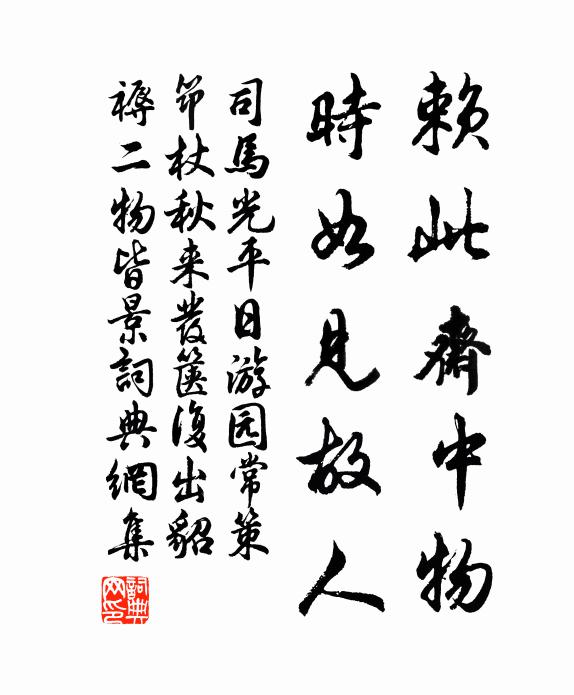 賴此齋中物
時如見故人
司馬光平日游园常策
筇杖秋来發篋復出貂
褥二物皆景詞典網集
詞典
网印